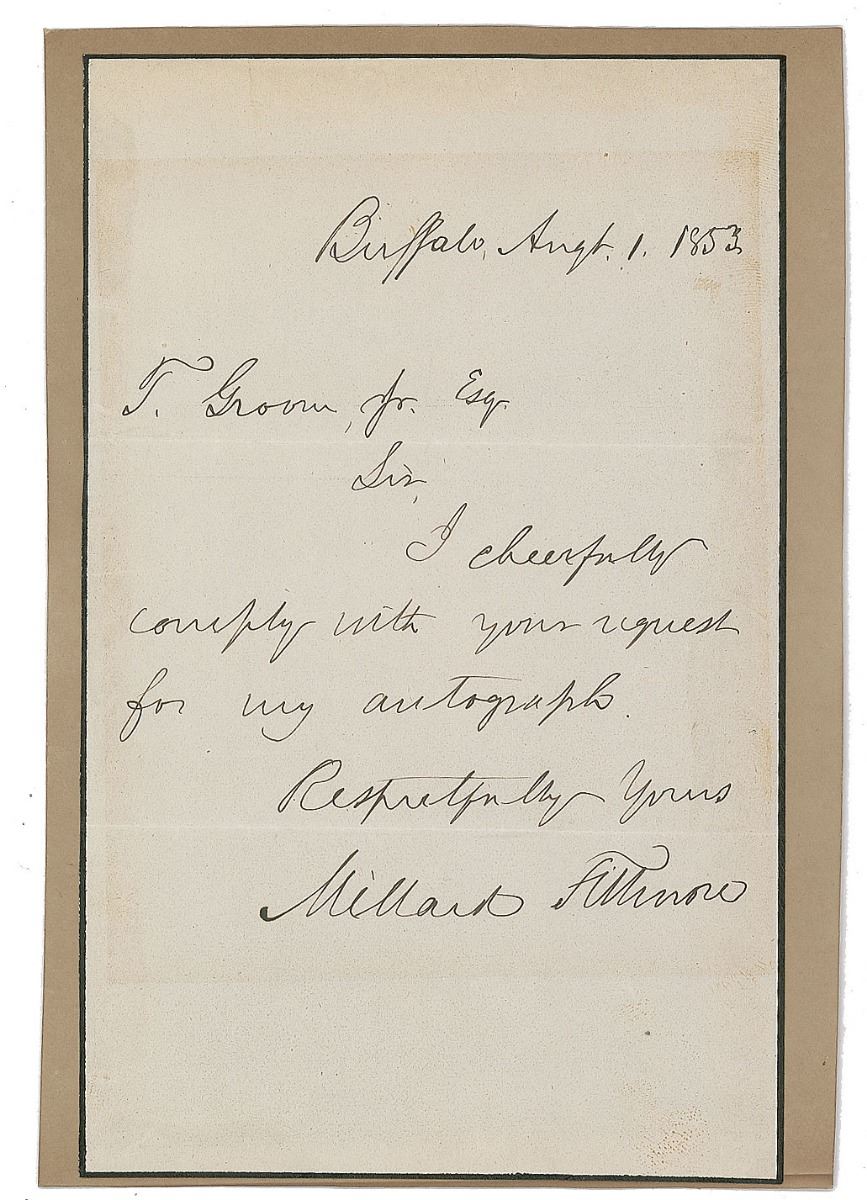 Buffalo, Augt. 1. 1853
T. Groom, Jr. Esq.
Sir,
I cheerfully
comply with your request
for my autograph.
Respectfully Yours
Millard Fillmore